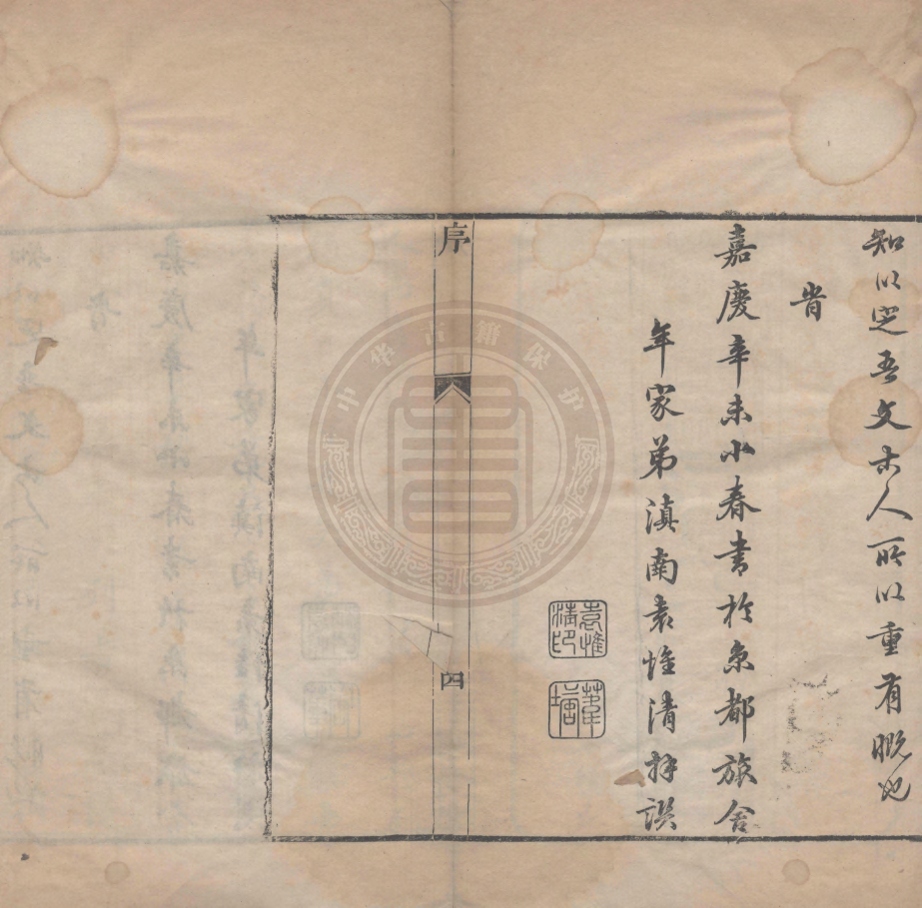 知以㝎吾文古人所以重有慨也
旹
嘉慶辛未小春書於京都旅舍
年家弟滇南袁惟清拜譔
袁惟清印
序
四
中华古籍保护